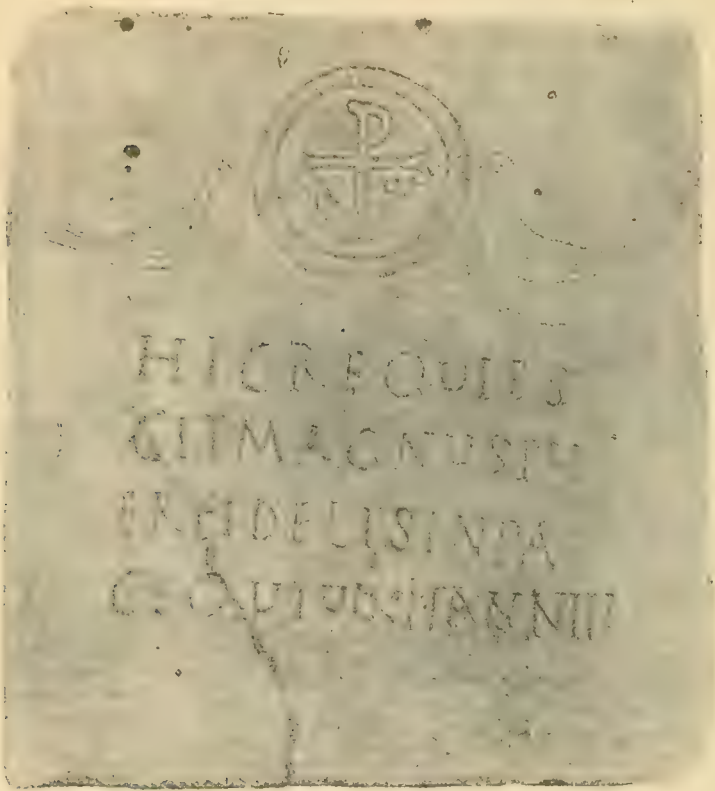 HICREQUIES
CITMAGNUSPU
ERFIDELISINPA
CEQUIVIXITANNIII